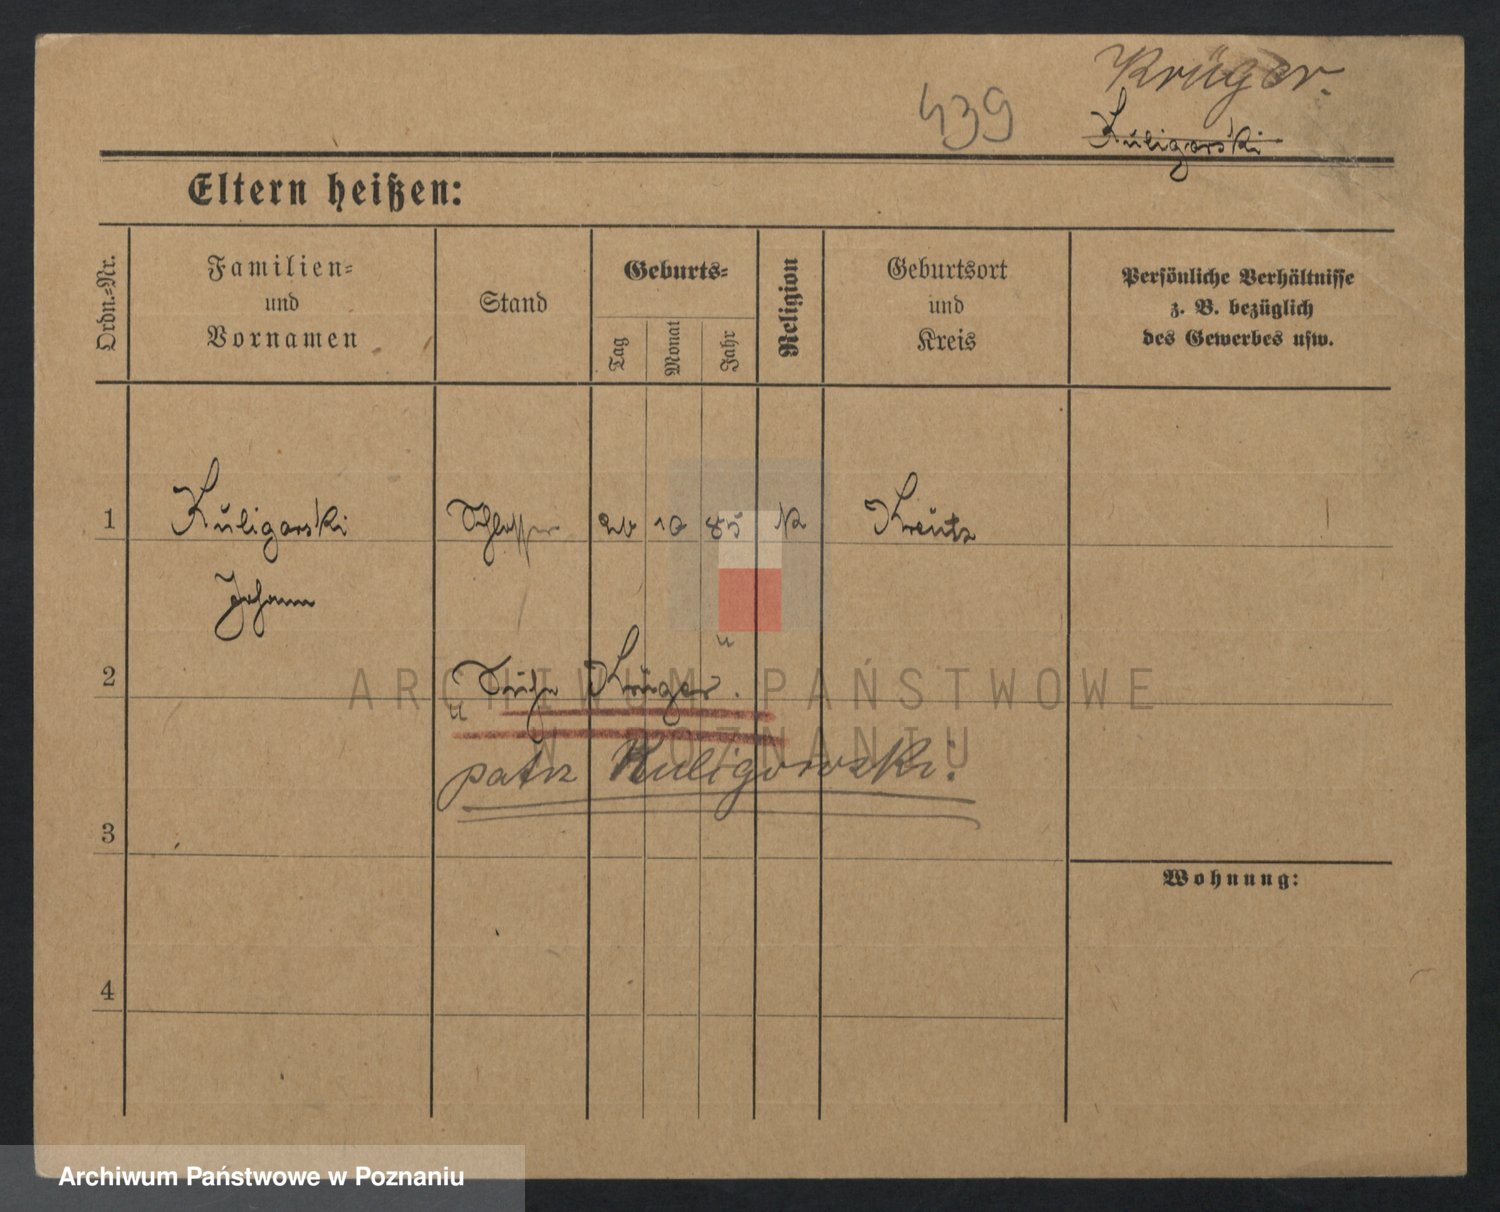 Krüger.
439
Kuligorski
Eltern heißen:
Ordn.-Nr.
Familien-
und
Vornamen
Stand
Geburts-
Tag
Monat
Jahr
Religion
Geburtsort
und
Kreis
Persönliche Verhältnisse
z. B. bezüglich
des Gewerbes usw.
1
Kuligorski
Schlosser
10
85
K
Kreutz
Johann
2
"Siehe Krüger."
patrz Kuligowski.
3
Wohnung:
4
ARCHIWUM PAŃSTWOWE
W POZNANIU
Archiwum Państwowe w Poznaniu